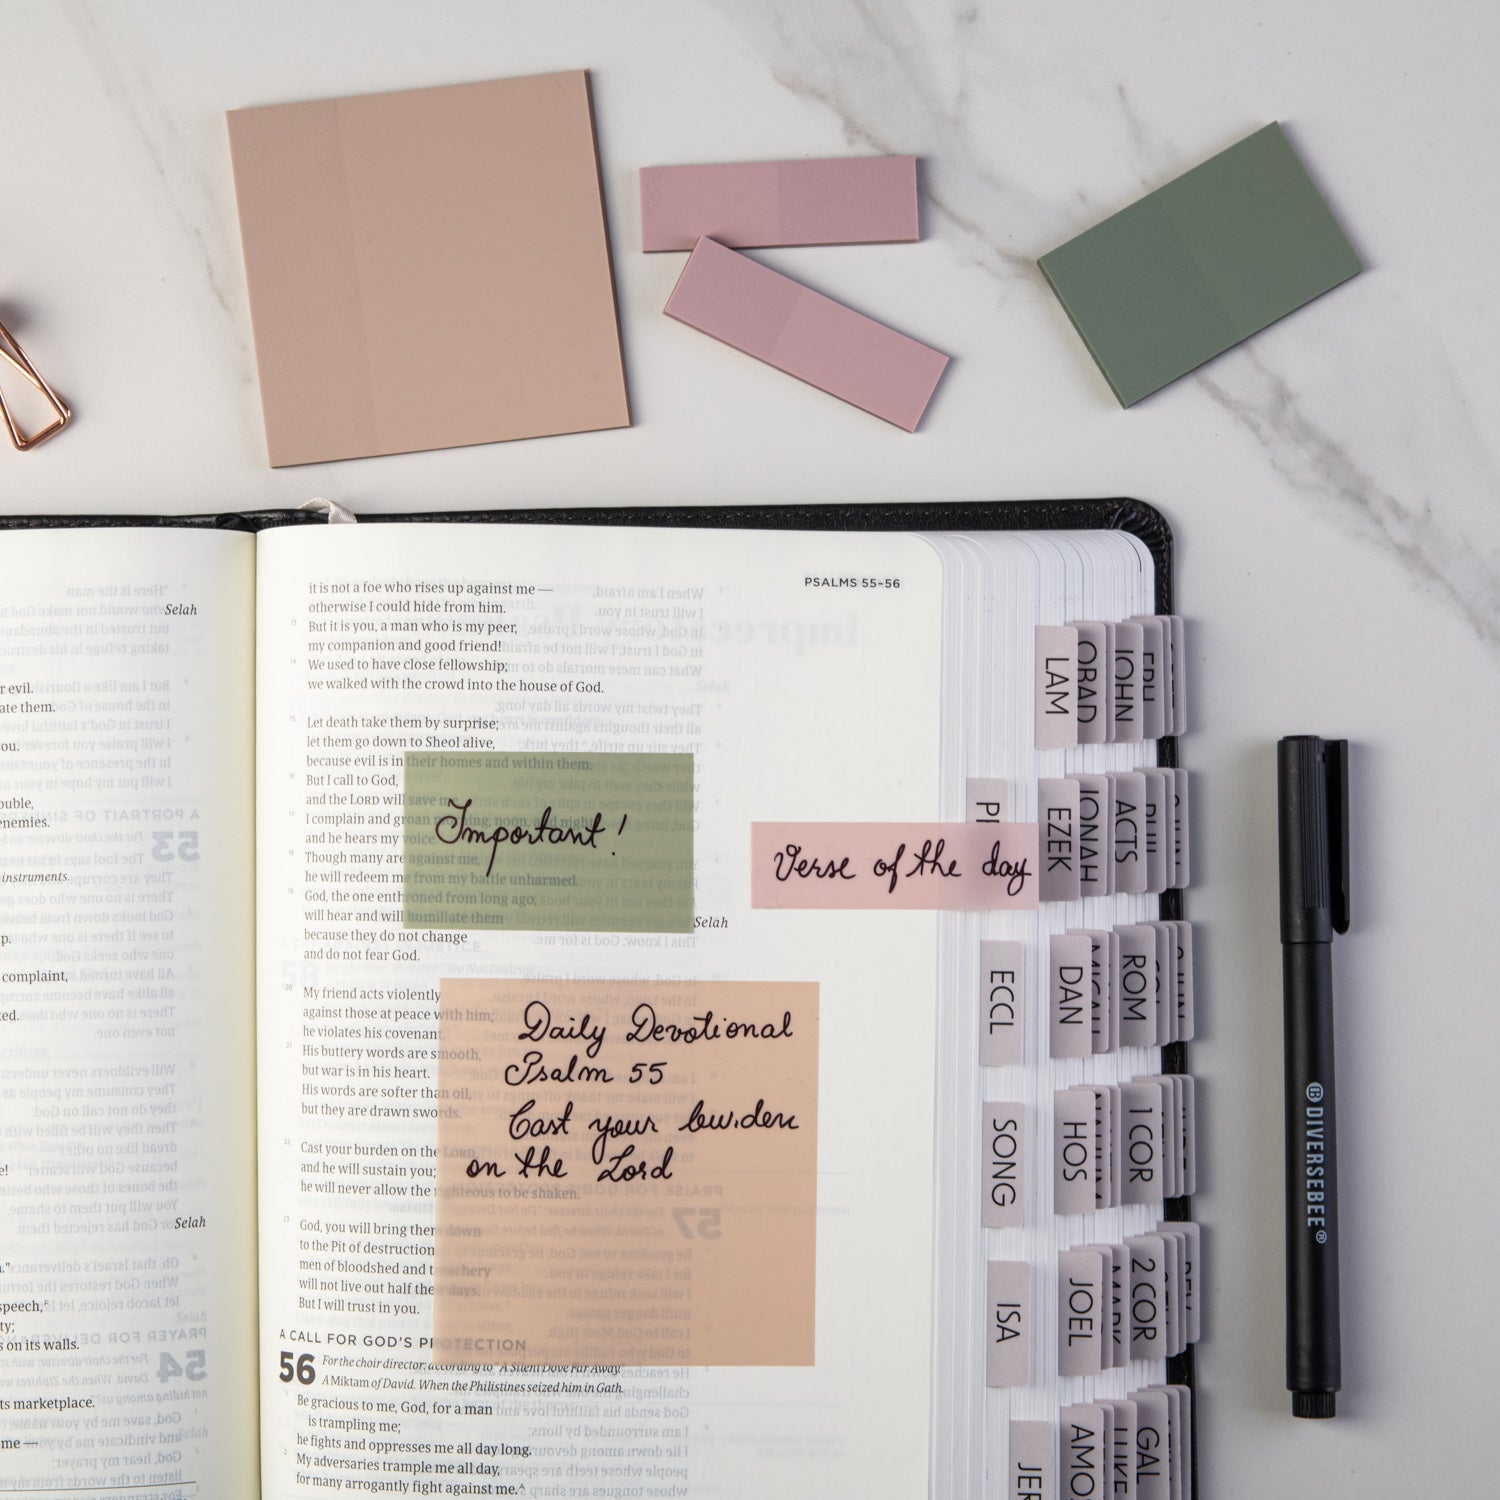 Selah
r evil.
ate them.
you.
ouble,
enemies.
instruments.
p.
complaint,
ted.
Selah
speech,
ty;
s on its walls.
ts marketplace.
me —
PSALMS 55–56
it is not a foe who rises up against me —
otherwise I could hide from him.
13 But it is you, a man who is my peer,
my companion and good friend!
14 We used to have close fellowship;
we walked with the crowd into the house of God.
15 Let death take them by surprise;
let them go down to Sheol alive,
because evil is in their homes and within them.
16 But I call to God,
and the LORD will save me.
17 I complain and groan morning, noon, and night,
and he hears my voice.
18 Though many are against me,
he will redeem me from my battle unharmed.
19 God, the one enthroned from long ago,
will hear and will humiliate them Selah
because they do not change
and do not fear God.
20 My friend acts violently
against those at peace with him;
he violates his covenant.
21 His buttery words are smooth,
but war is in his heart.
His words are softer than oil,
but they are drawn swords.
22 Cast your burden on the LORD,
and he will sustain you;
he will never allow the righteous to be shaken.
23 God, you will bring them down
to the Pit of destruction
men of bloodshed and treachery
will not live out half their days.
But I will trust in you.
A CALL FOR GOD'S PROTECTION
56 For the choir director: according to "A Silent Dove Far Away."
A Miktam of David. When the Philistines seized him in Gath.
1 Be gracious to me, God, for a man
is trampling me;
he fights and oppresses me all day long.
2 My adversaries trample me all day,
for many arrogantly fight against me.A
Important!
Verse of the day
Daily Devotional
Psalm 55
Cast your burden
on the Lord
LAM
OBAD
JOHN
EPH
EZEK
JONAH
ACTS
ECCL
DAN
MICAH
ROM
SONG
HOS
NAHUM
1 COR
ISA
JOEL
MARK
2 COR
REV
JER
AMOS
LUKE
GAL
DIVERSEBEE®